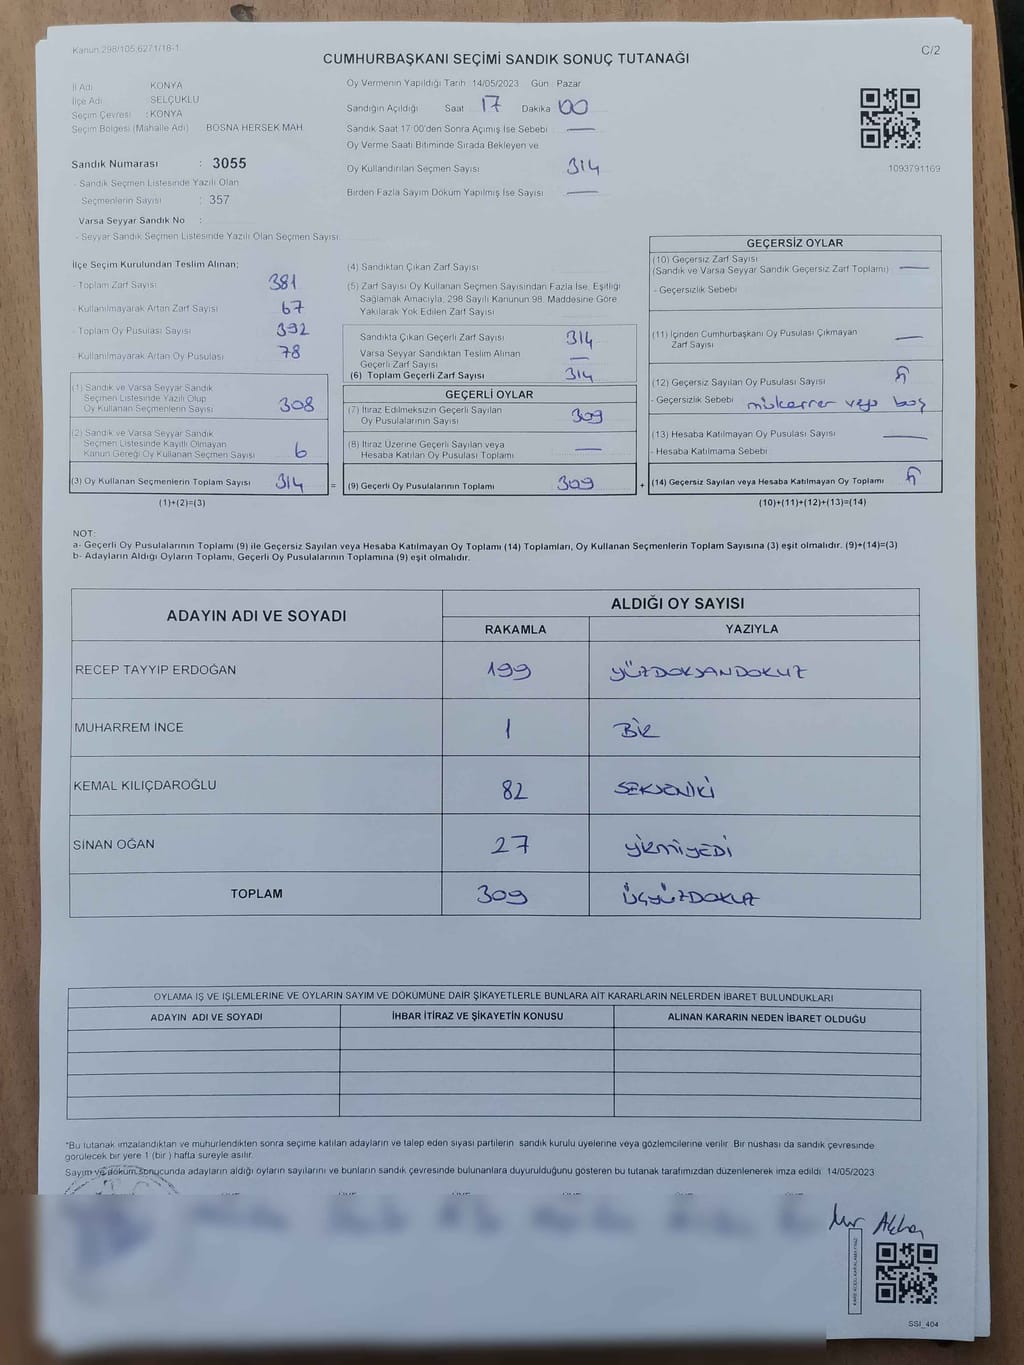 Kanun 298/105,6271/18-1
C/2
CUMHURBAŞKANI SEÇİMİ SANDIK SONUÇ TUTANAĞI
İl Adı KONYA
İlçe Adı SELÇUKLU
Seçim Çevresi : KONYA
Seçim Bölgesi (Mahalle Adı) BOSNA HERSEK MAH.
Sandık Numarası : 3055
- Sandık Seçmen Listesinde Yazılı Olan
Seçmenlerin Sayısı : 357
Varsa Seyyar Sandık No :
- Seyyar Sandık Seçmen Listesinde Yazılı Olan Seçmen Sayısı:
Oy Vermenin Yapıldığı Tarih 14/05/2023 Gün Pazar
Sandığın Açıldığı Saat 17 Dakika 00
Sandık Saat 17:00'den Sonra Açımış İse Sebebi —
Oy Verme Saati Bitiminde Sırada Bekleyen ve
Oy Kullandırılan Seçmen Sayısı 314
Birden Fazla Sayım Döküm Yapılmış İse Sayısı —
1093791169
İlçe Seçim Kurulundan Teslim Alınan;
- Toplam Zarf Sayısı 381
- Kullanılmayarak Artan Zarf Sayısı 67
- Toplam Oy Pusulası Sayısı 392
- Kullanılmayarak Artan Oy Pusulası 78
(1) Sandık ve Varsa Seyyar Sandık
Seçmen Listesinde Yazılı Olup
Oy Kullanan Seçmenlerin Sayısı 308
(2) Sandık ve Varsa Seyyar Sandık
Seçmen Listesinde Kayıtlı Olmayan
Kanun Gereği Oy Kullanan Seçmen Sayısı 6
(3) Oy Kullanan Seçmenlerin Toplam Sayısı 314
(1)+(2)=(3)
(4) Sandıktan Çıkan Zarf Sayısı
(5) Zarf Sayısı Oy Kullanan Seçmen Sayısından Fazla İse, Eşitliği
Sağlamak Amacıyla, 298 Sayılı Kanunun 98. Maddesine Göre
Yakılarak Yok Edilen Zarf Sayısı
Sandıkta Çıkan Geçerli Zarf Sayısı 314
Varsa Seyyar Sandıktan Teslim Alınan
Geçerli Zarf Sayısı —
(6) Toplam Geçerli Zarf Sayısı 314
GEÇERLİ OYLAR
(7) İtiraz Edilmeksizin Geçerli Sayılan
Oy Pusulalarının Sayısı 309
(8) İtiraz Üzerine Geçerli Sayılan veya
Hesaba Katılan Oy Pusulası Toplamı —
= (9) Geçerli Oy Pusulalarının Toplamı 309 +
GEÇERSİZ OYLAR
(10) Geçersiz Zarf Sayısı
(Sandık ve Varsa Seyyar Sandık Geçersiz Zarf Toplamı) —
- Geçersizlik Sebebi
(11) İçinden Cumhurbaşkanı Oy Pusulası Çıkmayan
Zarf Sayısı —
(12) Geçersiz Sayılan Oy Pusulası Sayısı 5
- Geçersizlik Sebebi mükerrer veya boş
(13) Hesaba Katılmayan Oy Pusulası Sayısı —
- Hesaba Katılmama Sebebi
(14) Geçersiz Sayılan veya Hesaba Katılmayan Oy Toplamı 5
(10)+(11)+(12)+(13)=(14)
NOT:
a- Geçerli Oy Pusulalarının Toplamı (9) ile Geçersiz Sayılan veya Hesaba Katılmayan Oy Toplamı (14) Toplamları, Oy Kullanan Seçmenlerin Toplam Sayısına (3) eşit olmalıdır. (9)+(14)=(3)
b- Adayların Aldığı Oyların Toplamı, Geçerli Oy Pusulalarının Toplamına (9) eşit olmalıdır.
ADAYIN ADI VE SOYADI ALDIĞI OY SAYISI
RAKAMLA YAZIYLA
RECEP TAYYIP ERDOĞAN 199 YÜZDOKSANDOKUZ
MUHARREM İNCE 1 BİR
KEMAL KILIÇDAROĞLU 82 SEKSENİKİ
SİNAN OĞAN 27 YİRMİYEDİ
TOPLAM 309 ÜÇYÜZDOKUZ
OYLAMA İŞ VE İŞLEMLERINE VE OYLARIN SAYIM VE DÖKÜMÜNE DAİR ŞİKAYETLERLE BUNLARA AİT KARARLARIN NELERDEN İBARET BULUNDUKLARI
ADAYIN ADI VE SOYADI İHBAR İTİRAZ VE ŞİKAYETİN KONUSU ALINAN KARARIN NEDEN İBARET OLDUĞU
*Bu tutanak imzalandıktan ve mühürlendikten sonra seçime katılan adayların ve talep eden siyasi partilerin sandık kurulu üyelerine veya gözlemcilerine verilir. Bir nüshası da sandık çevresinde
görülecek bir yere 1 (bir) hafta süreyle asılır.
Sayım ve döküm sonucunda adayların aldığı oyların sayılarını ve bunların sandık çevresinde bulunanlara duyurulduğunu gösteren bu tutanak tarafımızdan düzenlenerek imza edildi. 14/05/2023
SSI_404